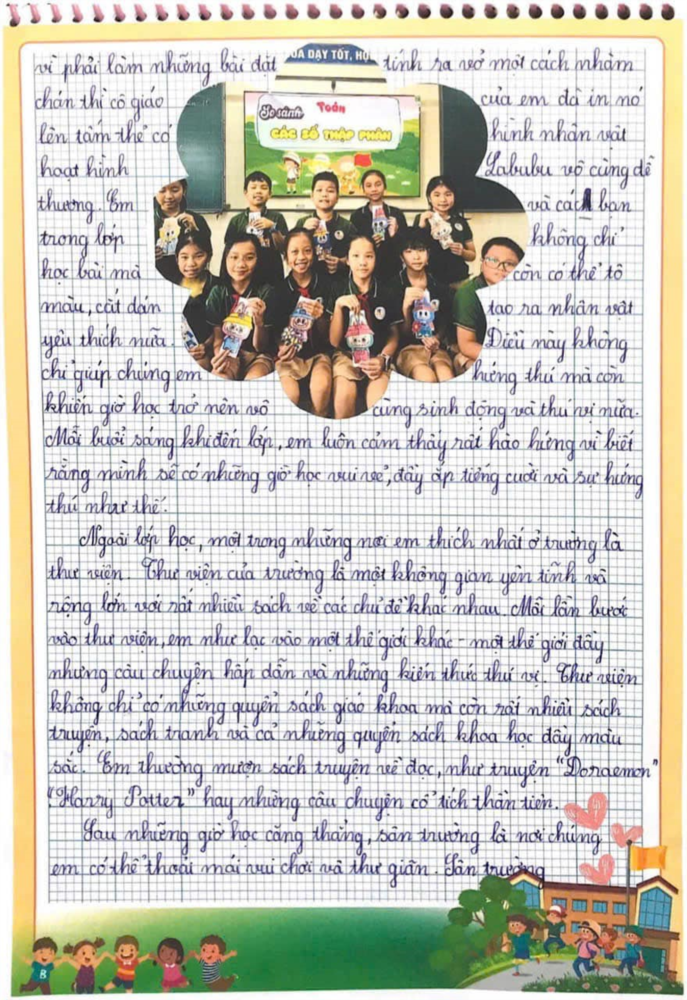 ƯA DẠY TỐT, HỌC
So sánh Toán
CÁC SỐ THẬP PHÂN
vì phải làm những bài đặt tính ra vở một cách nhàm
chán thì cô giáo của em đã in nó
lên tấm thẻ có hình nhân vật
hoạt hình Labubu vô cùng dễ
thương. Em và các bạn
trong lớp không chỉ
học bài mà còn có thể tô
màu, cắt dán tạo ra nhân vật
yêu thích nữa. Điều này không
chỉ giúp chúng em hứng thú mà còn
khiến giờ học trở nên vô cùng sinh động và thú vị nữa.
Mỗi buổi sáng khi đến lớp, em luôn cảm thấy rất hào hứng vì biết
rằng mình sẽ có những giờ học vui vẻ, đầy ắp tiếng cười và sự hứng
thú như thế.
Ngoài lớp học, một trong những nơi em thích nhất ở trường là
thư viện. Thư viện của trường là một không gian yên tĩnh và
rộng lớn với rất nhiều sách về các chủ đề khác nhau. Mỗi lần bước
vào thư viện, em như lạc vào một thế giới khác - một thế giới đầy
những câu chuyện hấp dẫn và những kiến thức thú vị. Thư viện
không chỉ có những quyển sách giáo khoa mà còn rất nhiều sách
truyện, sách tranh và cả những quyển sách khoa học đầy màu
sắc. Em thường mượn sách truyện về đọc, như truyện "Doraemon"
"Harry Potter" hay những câu chuyện cổ tích thần tiên.
Sau những giờ học căng thẳng, sân trường là nơi chúng
em có thể thoải mái vui chơi và thư giãn. Sân trường
B